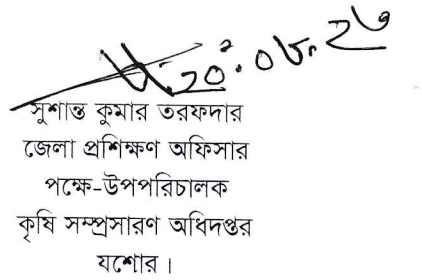 ২০.০৮.২৩
সুশান্ত কুমার তরফদার
জেলা প্রশিক্ষণ অফিসার
পক্ষে-উপপরিচালক
কৃষি সম্প্রসারণ অধিদপ্তর
যশোর।